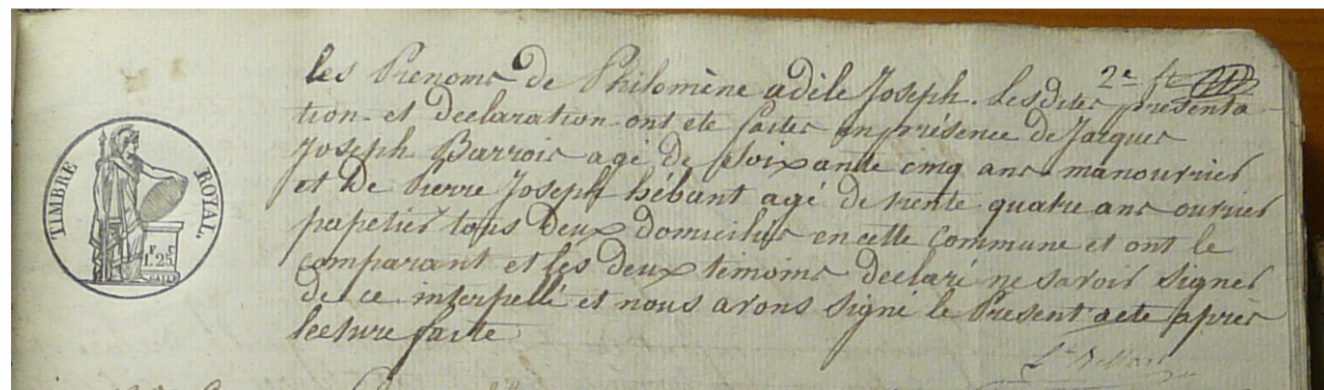 2e ft
les Prenoms de Philomène adèle Joseph. lesdites présenta
tion et Declaration ont ete faites en présence de Jacques
Joseph Barrois agé de soixante cinq ans manouvrier
et de Pierre Joseph hébant agé de trente quatre ans ouvrier
papetier tous deux domiciliés en cette Commune et ont le
comparant et les deux témoins declaré ne savoir signer
de ce interpellé et nous avons signé le Present acte après
lecture faite
TIMBRE ROYAL.
F. C.
1.25